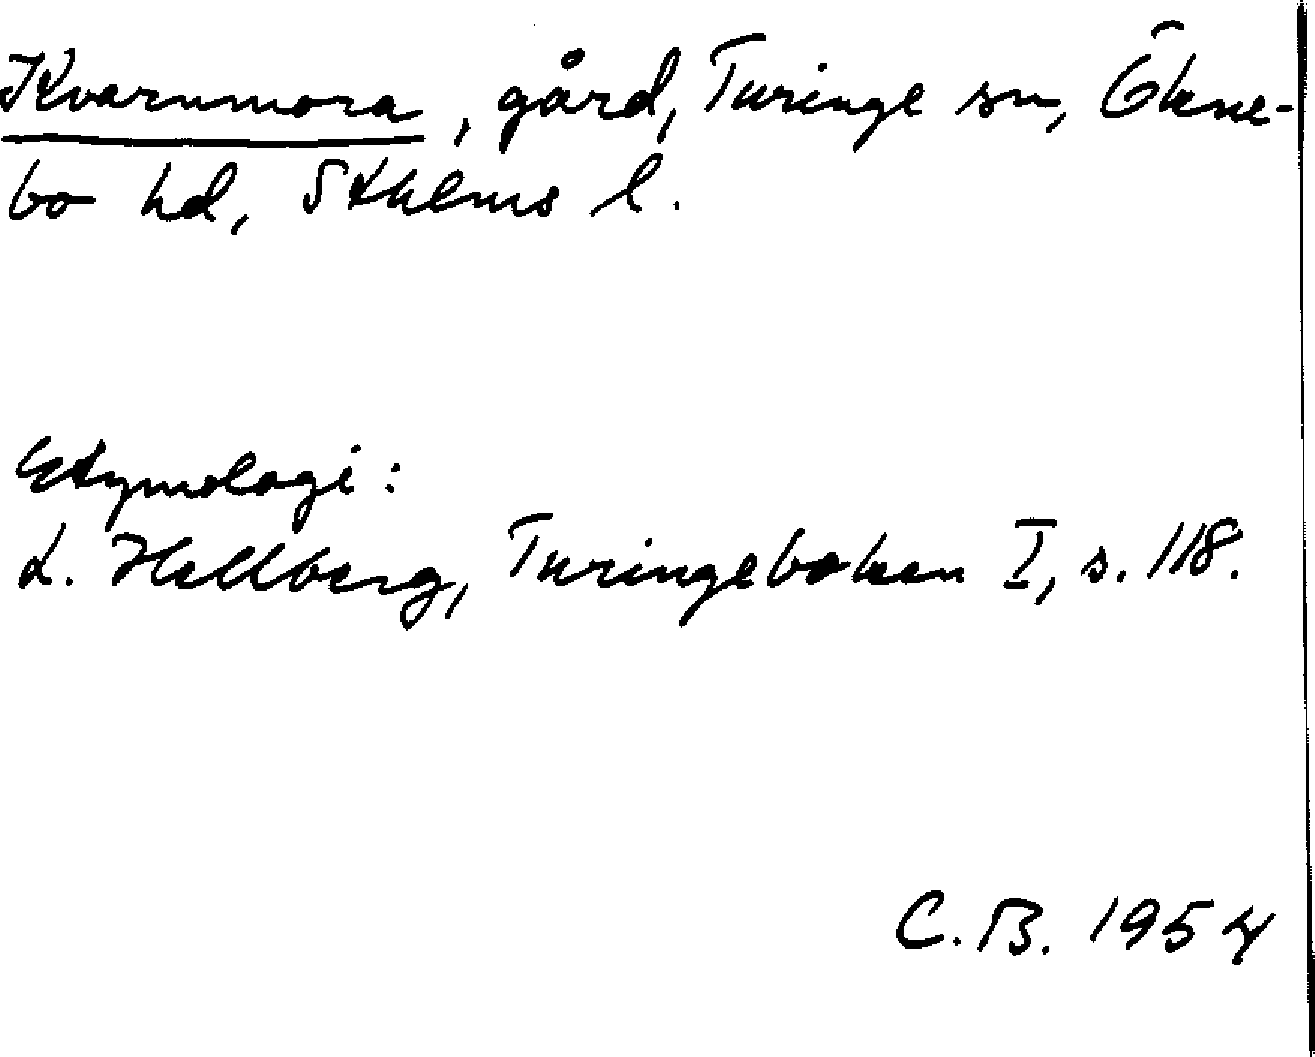 Kvarnmora, gård, Turinge sn, Ökne-
bo hd, Sthlms l.
Etymologi:
L. Hellberg, Turingeboken I, s. 118.
C.B. 1954